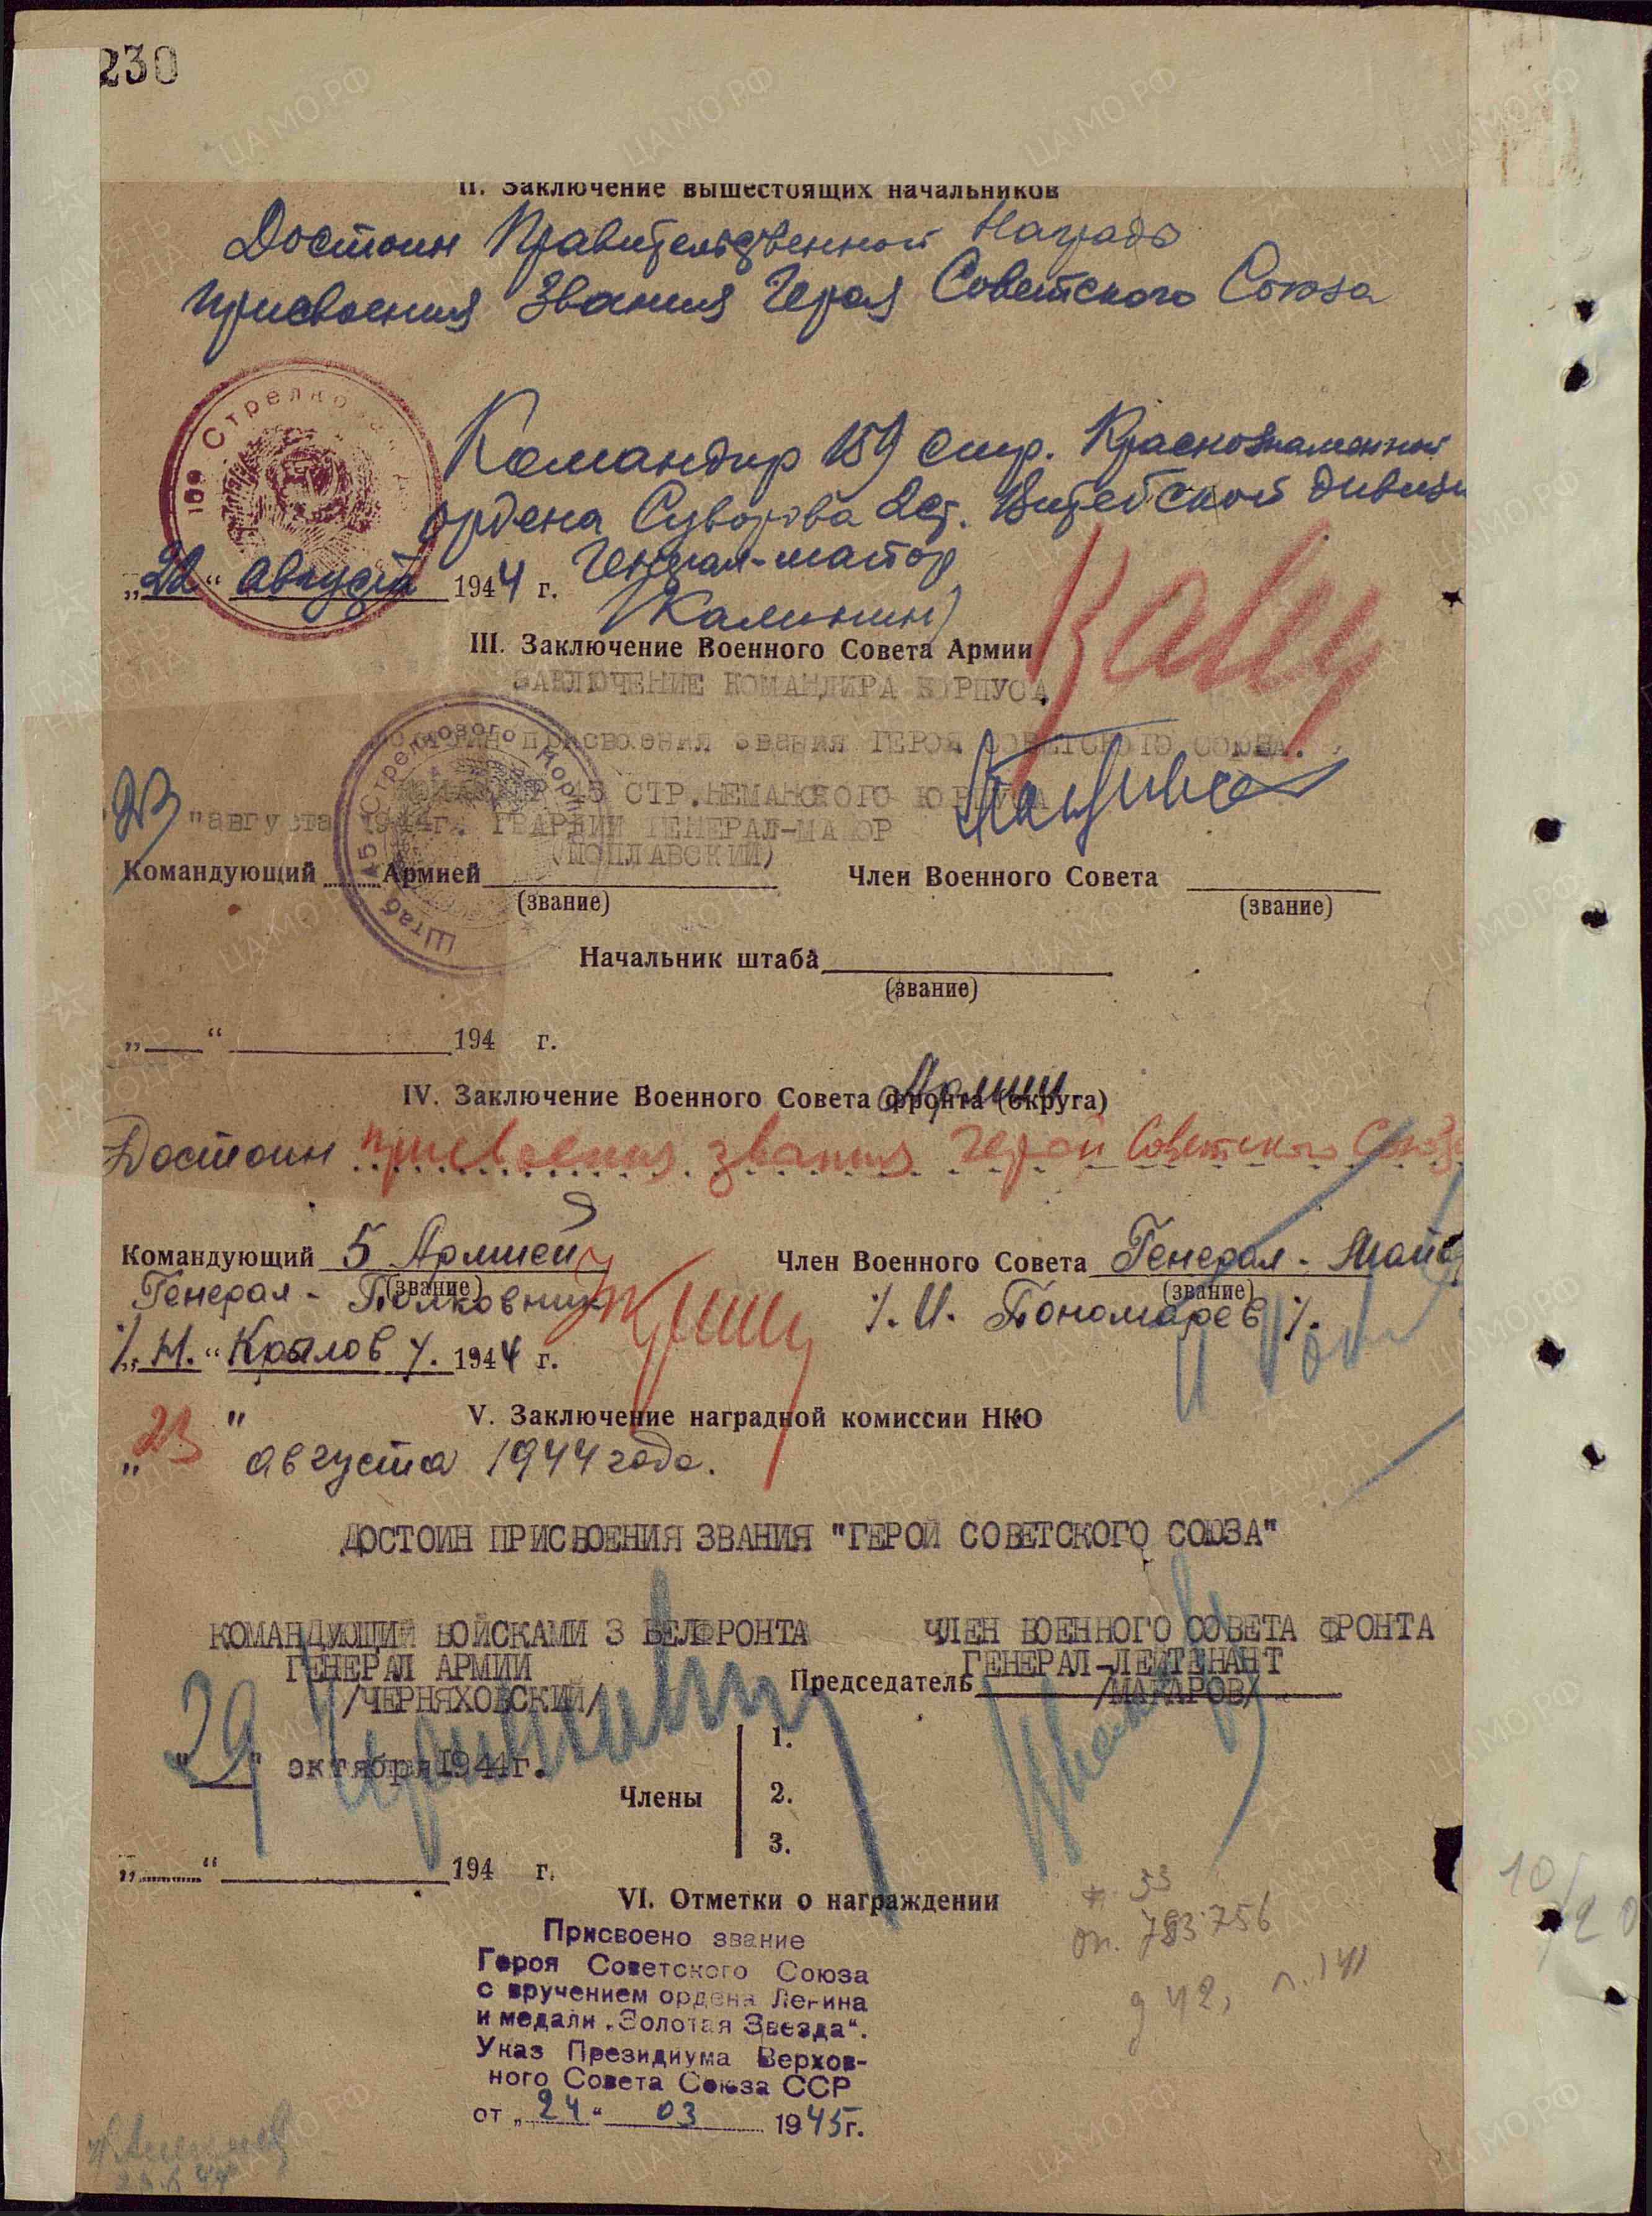 230
II. Заключение вышестоящих начальников
Достоин Правительственной Награды
присвоения Звания Героя Советского Союза
Командир 159 стр. Краснознаменной
ордена Суворова 2 ст. Витебской дивизи
Генерал-майор
„22“ август 1944 г.
(Калинин)
III. Заключение Военного Совета Армии
ЗАКЛЮЧЕНИЕ КОМАНДИРА КОРПУСА
Достоин присвоения звания ГЕРОЯ СОВЕТСКОГО СОЮЗА.
КОМАНДИР 45 СТР.НЕМАНСКОГО КОРПУСА
23 "августа 1944г. ГВАРДИИ ГЕНЕРАЛ-МАЙОР
(ПОПЛАВСКИЙ)
Штаб 45 Стрелкового Корп
Командующий Армией Член Военного Совета
(звание) (звание)
Начальник штаба
(звание)
„ “ 194 г.
IV. Заключение Военного Совета фронта (округа)
Армии
Достоин присвоения звания Герой Советского Союза
Командующий 5 Армией Член Военного Совета Генерал-Майо
(звание) (звание)
Генерал-Полковник /.И. Пономарев/.
/.Н. Крылов/. 1944 г.
V. Заключение наградной комиссии НКО
„23" августа 1944 года.
ДОСТОИН ПРИСВОЕНИЯ ЗВАНИЯ "ГЕРОЙ СОВЕТСКОГО СОЮЗА"
КОМАНДУЮЩИЙ ВОЙСКАМИ 3 БЕЛФРОНТА ЧЛЕН ВОЕННОГО СОВЕТА ФРОНТА
ГЕНЕРАЛ АРМИИ ГЕНЕРАЛ-ЛЕЙТЕНАНТ
Председатель
/ЧЕРНЯХОВСКИЙ/ /МАКАРОВ/
"29" октября 1944г.
Члены
1.
2.
3.
„ “ 194 г.
VI. Отметки о награждении
Присвоено звание
Героя Советского Союза
с вручением ордена Ленина
и медали „Золотая Звезда“.
Указ Президиума Верхов-
ного Совета Союза ССР
от „24“ 03 1945г.
ф. 33
оп. 793756
д 42, л. 141
10/
/20